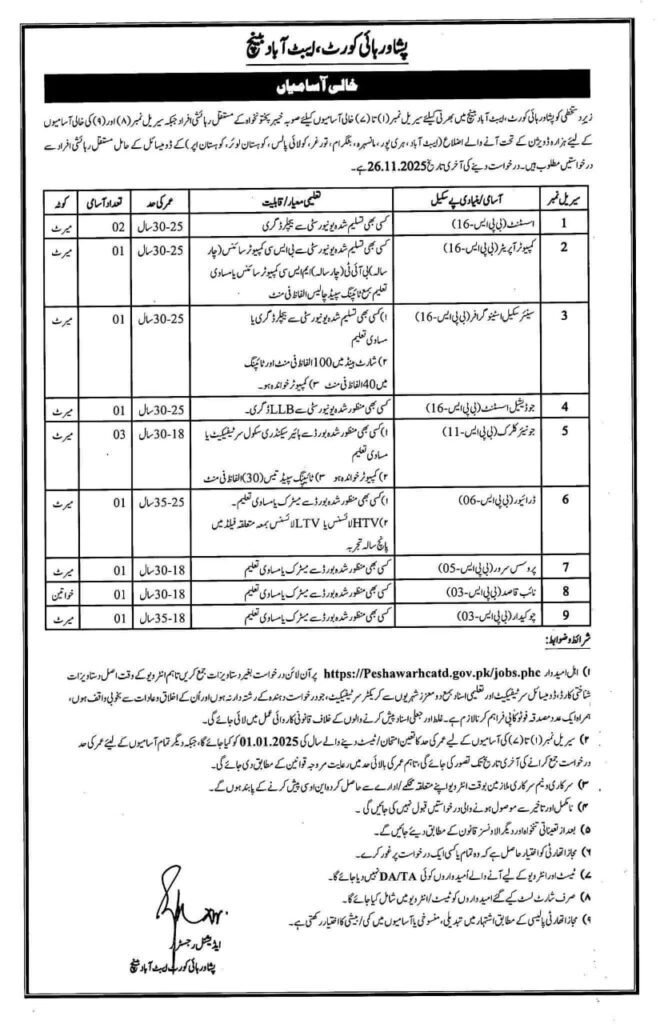 پشاور ہائی کورٹ، ایبٹ آباد بینچ
خالی آسامیاں
زیر دستخطی کو پشاور ہائی کورٹ، ایبٹ آباد بینچ میں بھرتی کیلئے سیریل نمبر (۱) تا (۷) خالی آسامیوں کیلئے صوبہ خیبر پختونخواہ کے مستقل رہائشی افراد جبکہ سیریل نمبر (۸) اور (۹) کی خالی آسامیوں
کے لیئے ہزارہ ڈویژن کے تحت آنے والے اضلاع (ایبٹ آباد، ہری پور، مانسہرہ، بٹگرام، تورغر، کولائی پالس، کوہستان لوئر، کوہستان اپر) کے ڈومیسائل کے حامل مستقل رہائشی افراد سے
درخواستیں مطلوب ہیں۔ درخواست دینے کی آخری تاریخ 26.11.2025 ہے۔
سیریل نمبر آسامی/بنیادی پے سکیل تعلیمی معیار/قابلیت عمر کی حد تعداد آسامی کوٹہ
1 اسسٹنٹ (بی پی ایس-16) کسی بھی تسلیم شدہ یونیورسٹی سے بیچلر ڈگری 25-30 سال 02 میرٹ
2 کمپیوٹر آپریٹر (بی پی ایس-16) کسی بھی تسلیم شدہ یونیورسٹی سے بی ایس سی کمپیوٹر سائنس (چار 25-30 سال 01 میرٹ
سالہ) بی آئی ٹی (چار سالہ) ایم ایس سی کمپیوٹر سائنس یا مساوی
تعلیم بمع ٹائپنگ سپیڈ چالیس الفاظ فی منٹ
3 سینئر سکیل اسٹینوگرافر (بی پی ایس-16) ۱) کسی بھی تسلیم شدہ یونیورسٹی سے بیچلر ڈگری یا 25-30 سال 01 میرٹ
مساوی تعلیم
۲) شارٹ ہینڈ میں 100 الفاظ فی منٹ اور ٹائپنگ
میں 40 الفاظ فی منٹ ۳) کمپیوٹر خواندہ ہو۔
4 جوڈیشل اسسٹنٹ (بی پی ایس-16) کسی بھی منظور شدہ یونیورسٹی سے LLB ڈگری۔ 25-30 سال 01 میرٹ
5 جونیئر کلرک (بی پی ایس-11) ۱) کسی بھی منظور شدہ بورڈ سے ہائیر سیکنڈری سکول سرٹیفیکیٹ یا 18-30 سال 03 میرٹ
مساوی تعلیم
۲) کمپیوٹر خواندہ ہو ۳) ٹائپنگ سپیڈ تیس (30) الفاظ فی منٹ
6 ڈرائیور (بی پی ایس-06) ۱) کسی بھی منظور شدہ بورڈ سے میٹرک یا مساوی تعلیم۔ 25-35 سال 01 میرٹ
۲) HTV لائسنس یا LTV لائسنس بمعہ متعلقہ فیلڈ میں
پانچ سالہ تجربہ
7 پروسس سرور (بی پی ایس-05) کسی بھی منظور شدہ بورڈ سے میٹرک یا مساوی تعلیم 18-30 سال 01 میرٹ
8 نائب قاصد (بی پی ایس-03) کسی بھی منظور شدہ بورڈ سے میٹرک یا مساوی تعلیم 18-30 سال 01 خواتین
9 چوکیدار (بی پی ایس-03) کسی بھی منظور شدہ بورڈ سے میٹرک یا مساوی تعلیم 18-35 سال 01 میرٹ
شرائط و ضوابط:
۱) اہل امیدوار https://Peshawarhcatd.gov.pk/jobs.phc پر آن لائن درخواست بغیر دستاویزات جمع کریں تاہم انٹرویو کے وقت اصل دستاویزات
شناختی کارڈ، ڈومیسائل سرٹیفیکیٹ اور تعلیمی اسناد بمع دو معزز شہریوں سے کریکٹر سرٹیفیکیٹ، جو درخواست دہندہ کے رشتہ دار نہ ہوں اور اُن کے اخلاق و عادات سے بخوبی واقف ہوں،
ہمراہ ایک عدد مصدقہ فوٹو کاپی فراہم کرنا لازم ہے۔ غلط اور جعلی اسناد پیش کرنے والوں کے خلاف قانونی کاروائی عمل میں لائی جائے گی۔
۲) سیریل نمبر (۱) تا (۷) کی آسامیوں کے لیے عمر کی حد کا تعین امتحان/ٹیسٹ دینے والے سال کی 01.01.2025 کو کیا جائے گا، جبکہ دیگر تمام آسامیوں کے لیئے عمر کی حد
درخواست جمع کرانے کی آخری تاریخ تک تصور کی جائے گی، تاہم عمر کی بالائی حد میں رعایت مروجہ قوانین کے مطابق دی جائے گی۔
۳) سرکاری و نیم سرکاری ملازمین بوقت انٹرویو اپنے متعلقہ محکمے/ادارے سے حاصل کردہ این او سی پیش کرنے کے پابند ہوں گے۔
۴) نامکمل اور تاخیر سے موصول ہونے والی درخواستیں قبول نہیں کی جائیں گی۔
۵) بعد از تعیناتی تنخواہ اور دیگر الاونسز قانون کے مطابق دیئے جائیں گے۔
۶) مجاز اتھارٹی کو اختیار حاصل ہے کہ وہ تمام یا کسی ایک درخواست پر غور کرے۔
۷) ٹیسٹ اور انٹرویو کے لیے آنے والے اُمیدواروں کو کوئی DA/TA نہیں دیا جائے گا۔
۸) صرف شارٹ لسٹ کیے گئے امیدواروں کو ٹیسٹ/انٹرویو میں شامل کیا جائے گا۔
۹) مجاز اتھارٹی پالیسی کے مطابق اشتہار میں تبدیلی، منسوخی یا آسامیوں میں کمی/بیشی کا اختیار رکھتی ہے۔
ایڈیشنل رجسٹرار
پشاور ہائی کورٹ ایبٹ آباد بینچ